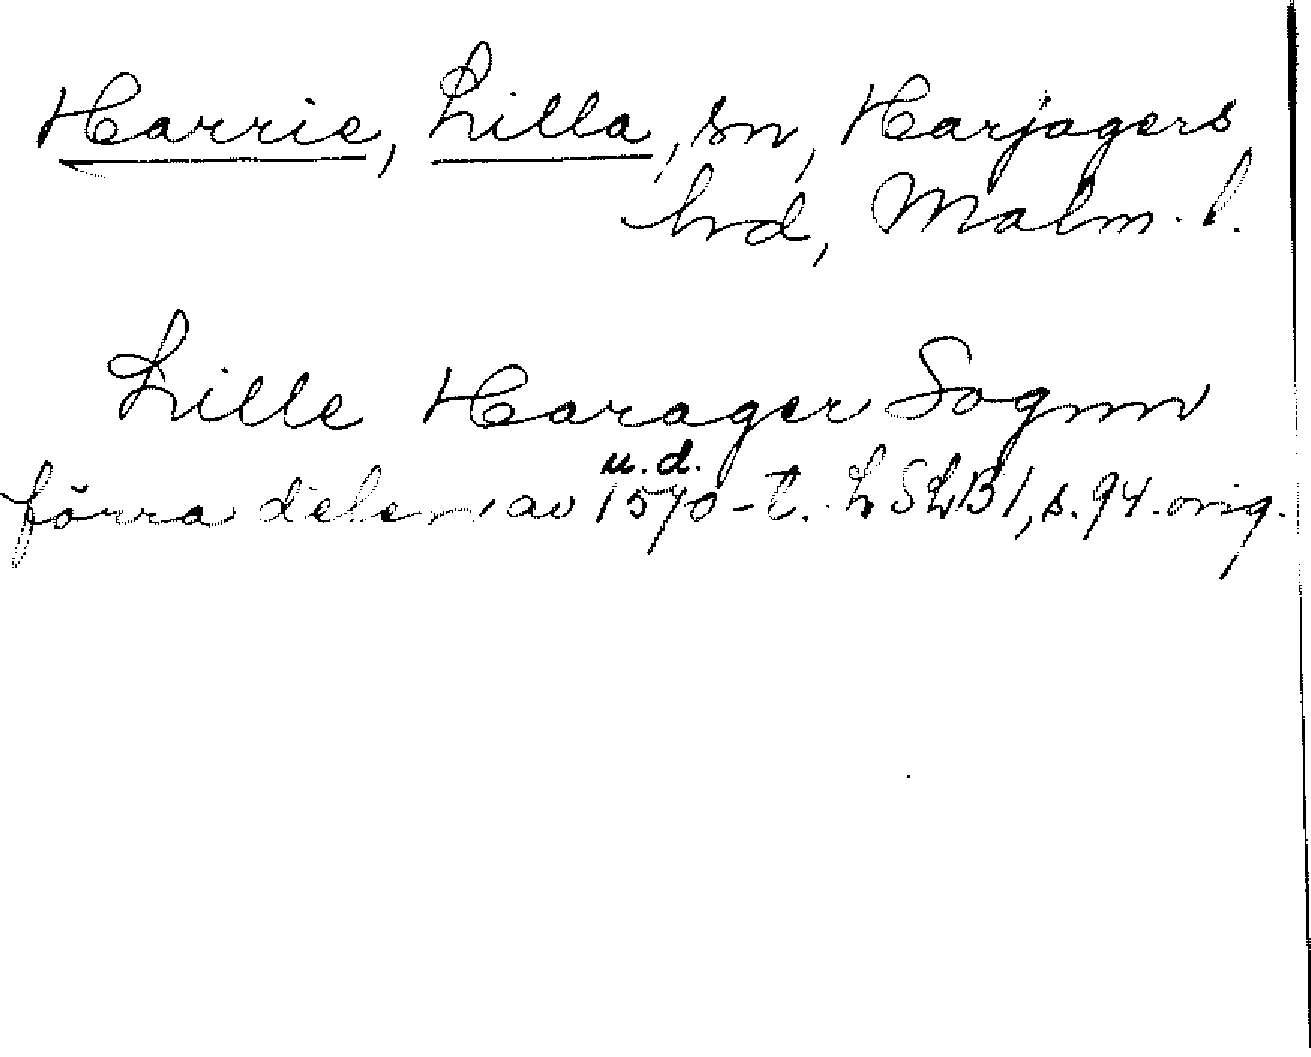 Harrie, Lilla, sn, Harjagers
hrd, Malm. l.
Lille Harager Sognn
u.d.
förra delen av 1570-t. LSLB1, s. 94. orig.